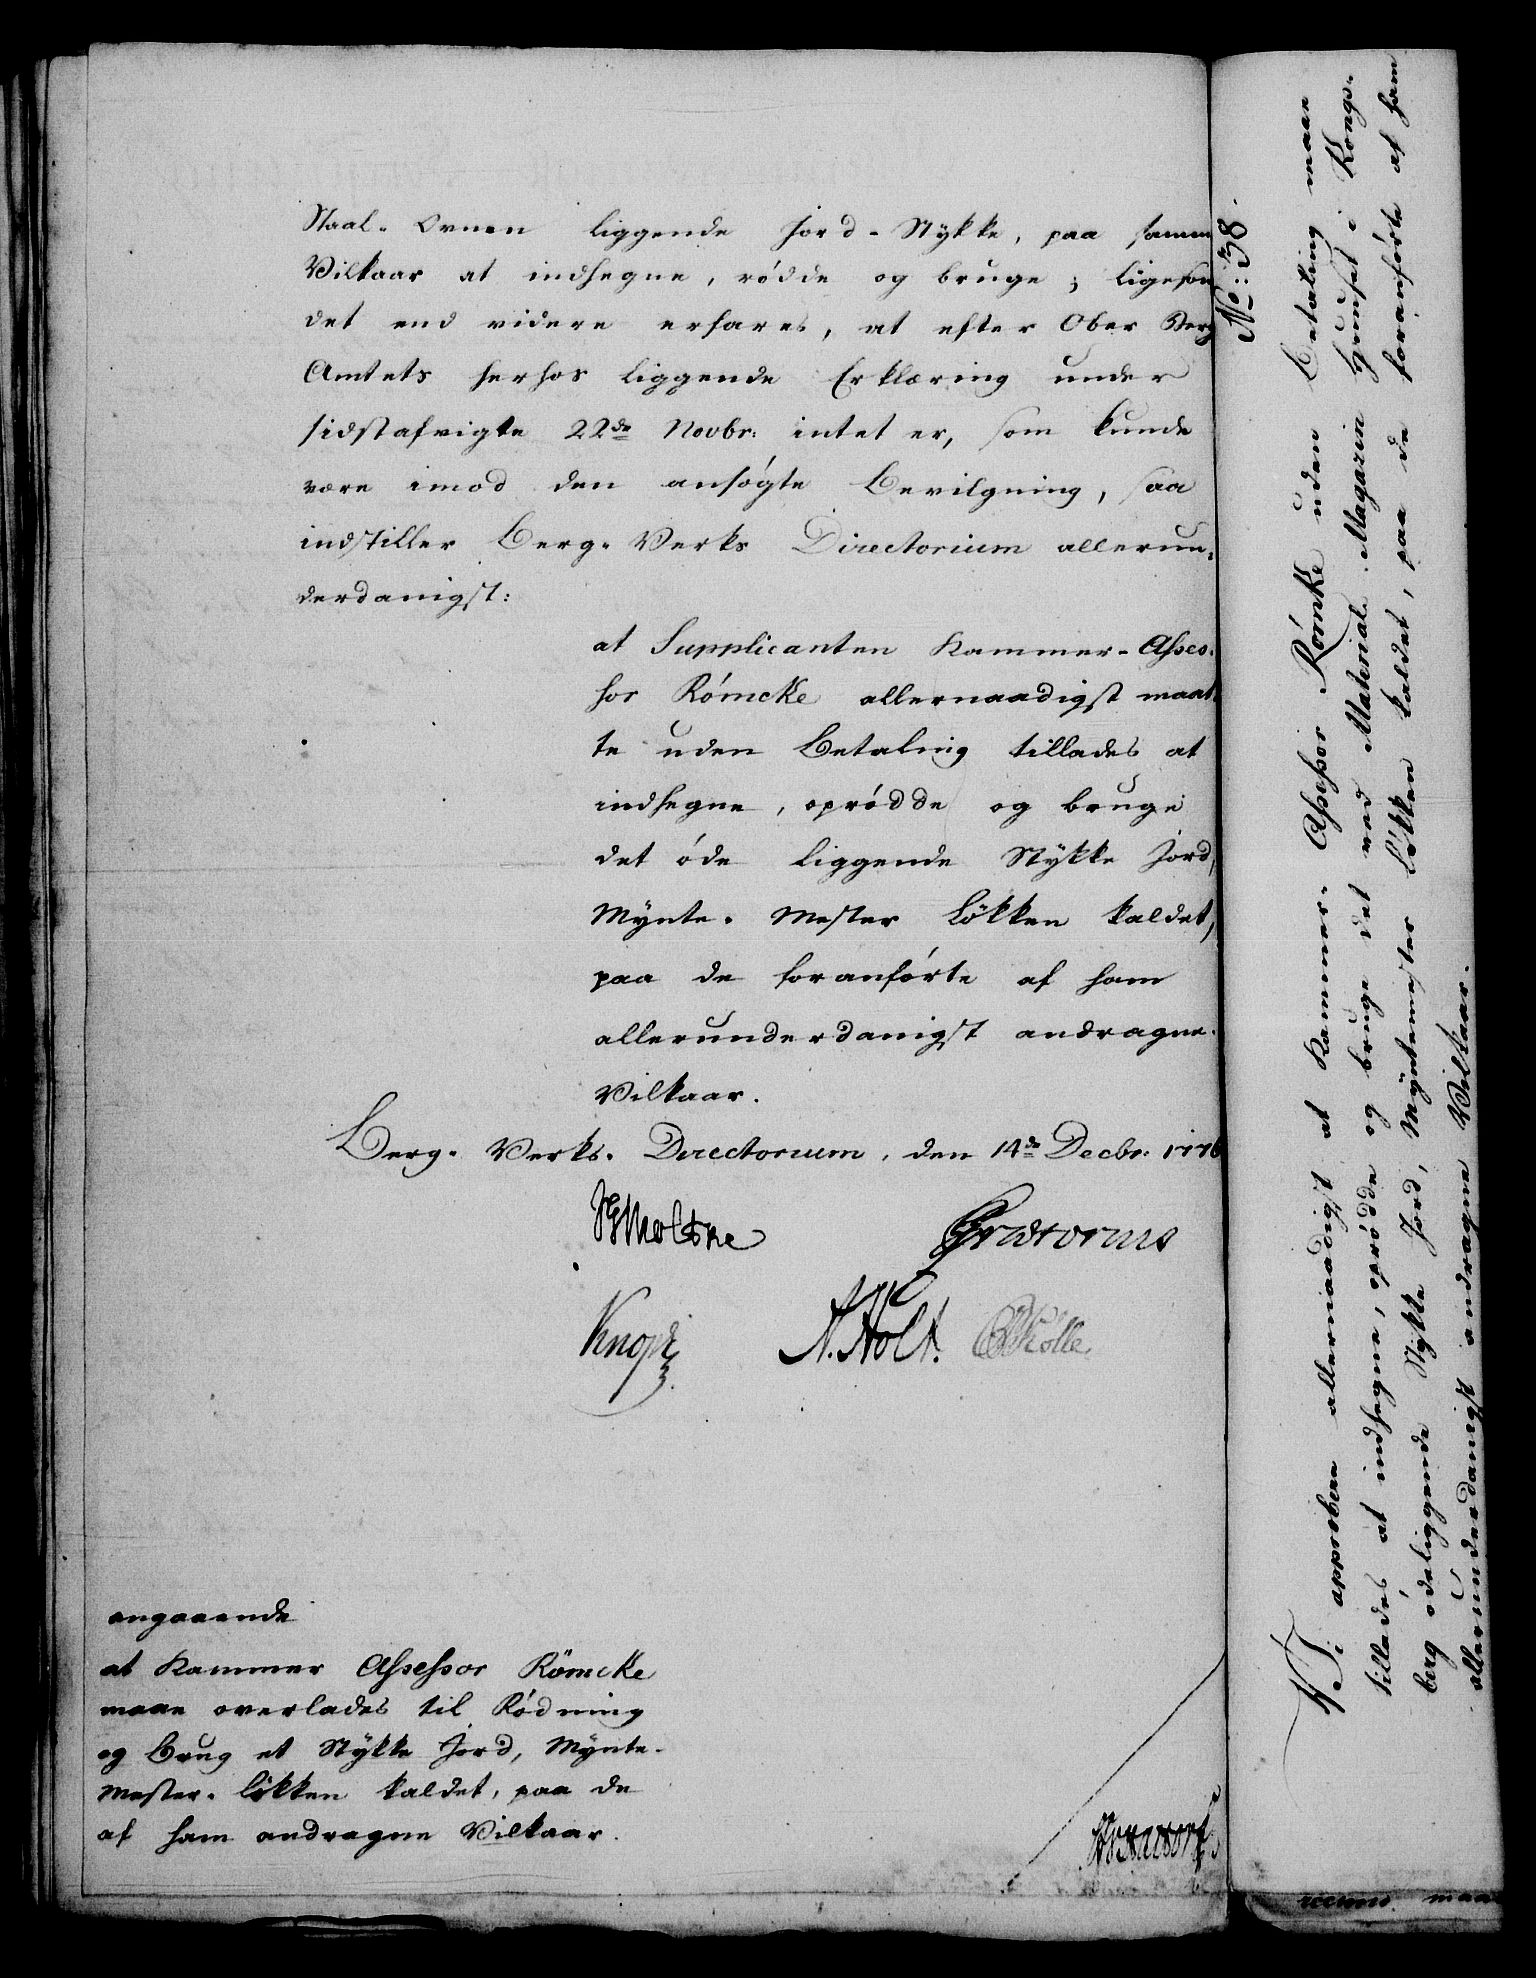 Staal-Ovnen liggende Jord-Stykke, paa samme
Vilkaar at indhegne, rødde og bruge; ligesom
det end videre erfares, at efter Ober Berg
Amtets herhos liggende Erklæring under
sidstafvigte 22de Novbr: intet er, som kunde
være imod den ansøgte Bevilgning, saa
indstiller Berg-Verks Directorium allerun-
derdanigst:
at Supplicanten Kammer-Asses-
sor Römcke allernaadigst maat
te uden Betaling tillades at
indhegne, oprødde og bruge
det øde liggende Stykke Jord,
Mynte-Mester Løkken kaldet,
paa de foranførte af ham
allerunderdanigst andragne
Vilkaar.
Berg-Verks-Directorium, den 14de Decbr: 1776
Moltke Prætorius
Knoph A. Holt. Kölle.
angaaende
at Kammer Assessor Römcke
maae overlades til Rødning
og Brug et Stykke Jord, Mynte-
Mester-Løkken kaldet, paa de
af ham andragne Vilkaar.
No: 38.
Vi approbere allernaadigst at Kammer-Assessor Römke uden Betaling maae
tillades at indhegne, oprødde og bruge det ved Material-Magazin Huuset i Kongs-
berg ødeliggende Stykke Jord, Myntemester Løkken kaldet, paa de foranførte af ham
allerunderdanigst andragne Vilkaar.
maae